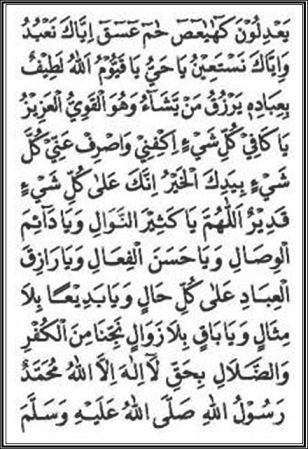 يَعْدِلُوْنَ كٓهٰيٰعٓصٓ حٰمٓ عٓسٓقٓ اِيَّاكَ نَعْبُدُ
وَاِيَّاكَ نَسْتَعِيْنُ يَا حَيُّ يَا قَيُّوْمُ اَللهُ لَطِيْفٌ
بِعِبَادِهٖ يَرْزُقُ مَنْ يَّشَآءُ وَهُوَ الْقَوِيُّ الْعَزِيْزُ
يَا كَافِيْ كُلِّ شَيْءٍ اِكْفِنِيْ وَاصْرِفْ عَنِّيْ كُلَّ
شَيْءٍ بِيَدِكَ الْخَيْرُ اِنَّكَ عَلٰى كُلِّ شَيْءٍ
قَدِيْرٌ اَللّٰهُمَّ يَا كَثِيْرَ النَّوَالِ وَيَا دَآئِمَ
الْوِصَالِ وَيَا حَسَنَ الْفِعَالِ وَيَا رَازِقَ
الْعِبَادِ عَلٰى كُلِّ حَالٍ وَيَا بَدِيْعًا بِلَا
مِثَالٍ وَيَا بَاقٍ بِلَا زَوَالٍ نَجِّنَا مِنَ الْكُفْرِ
وَالضَّلَالِ بِحَقِّ لَآ اِلٰهَ اِلَّا اللهُ مُحَمَّدٌ
رَسُوْلُ اللهِ صَلَّى اللهُ عَلَيْهِ وَسَلَّمَ